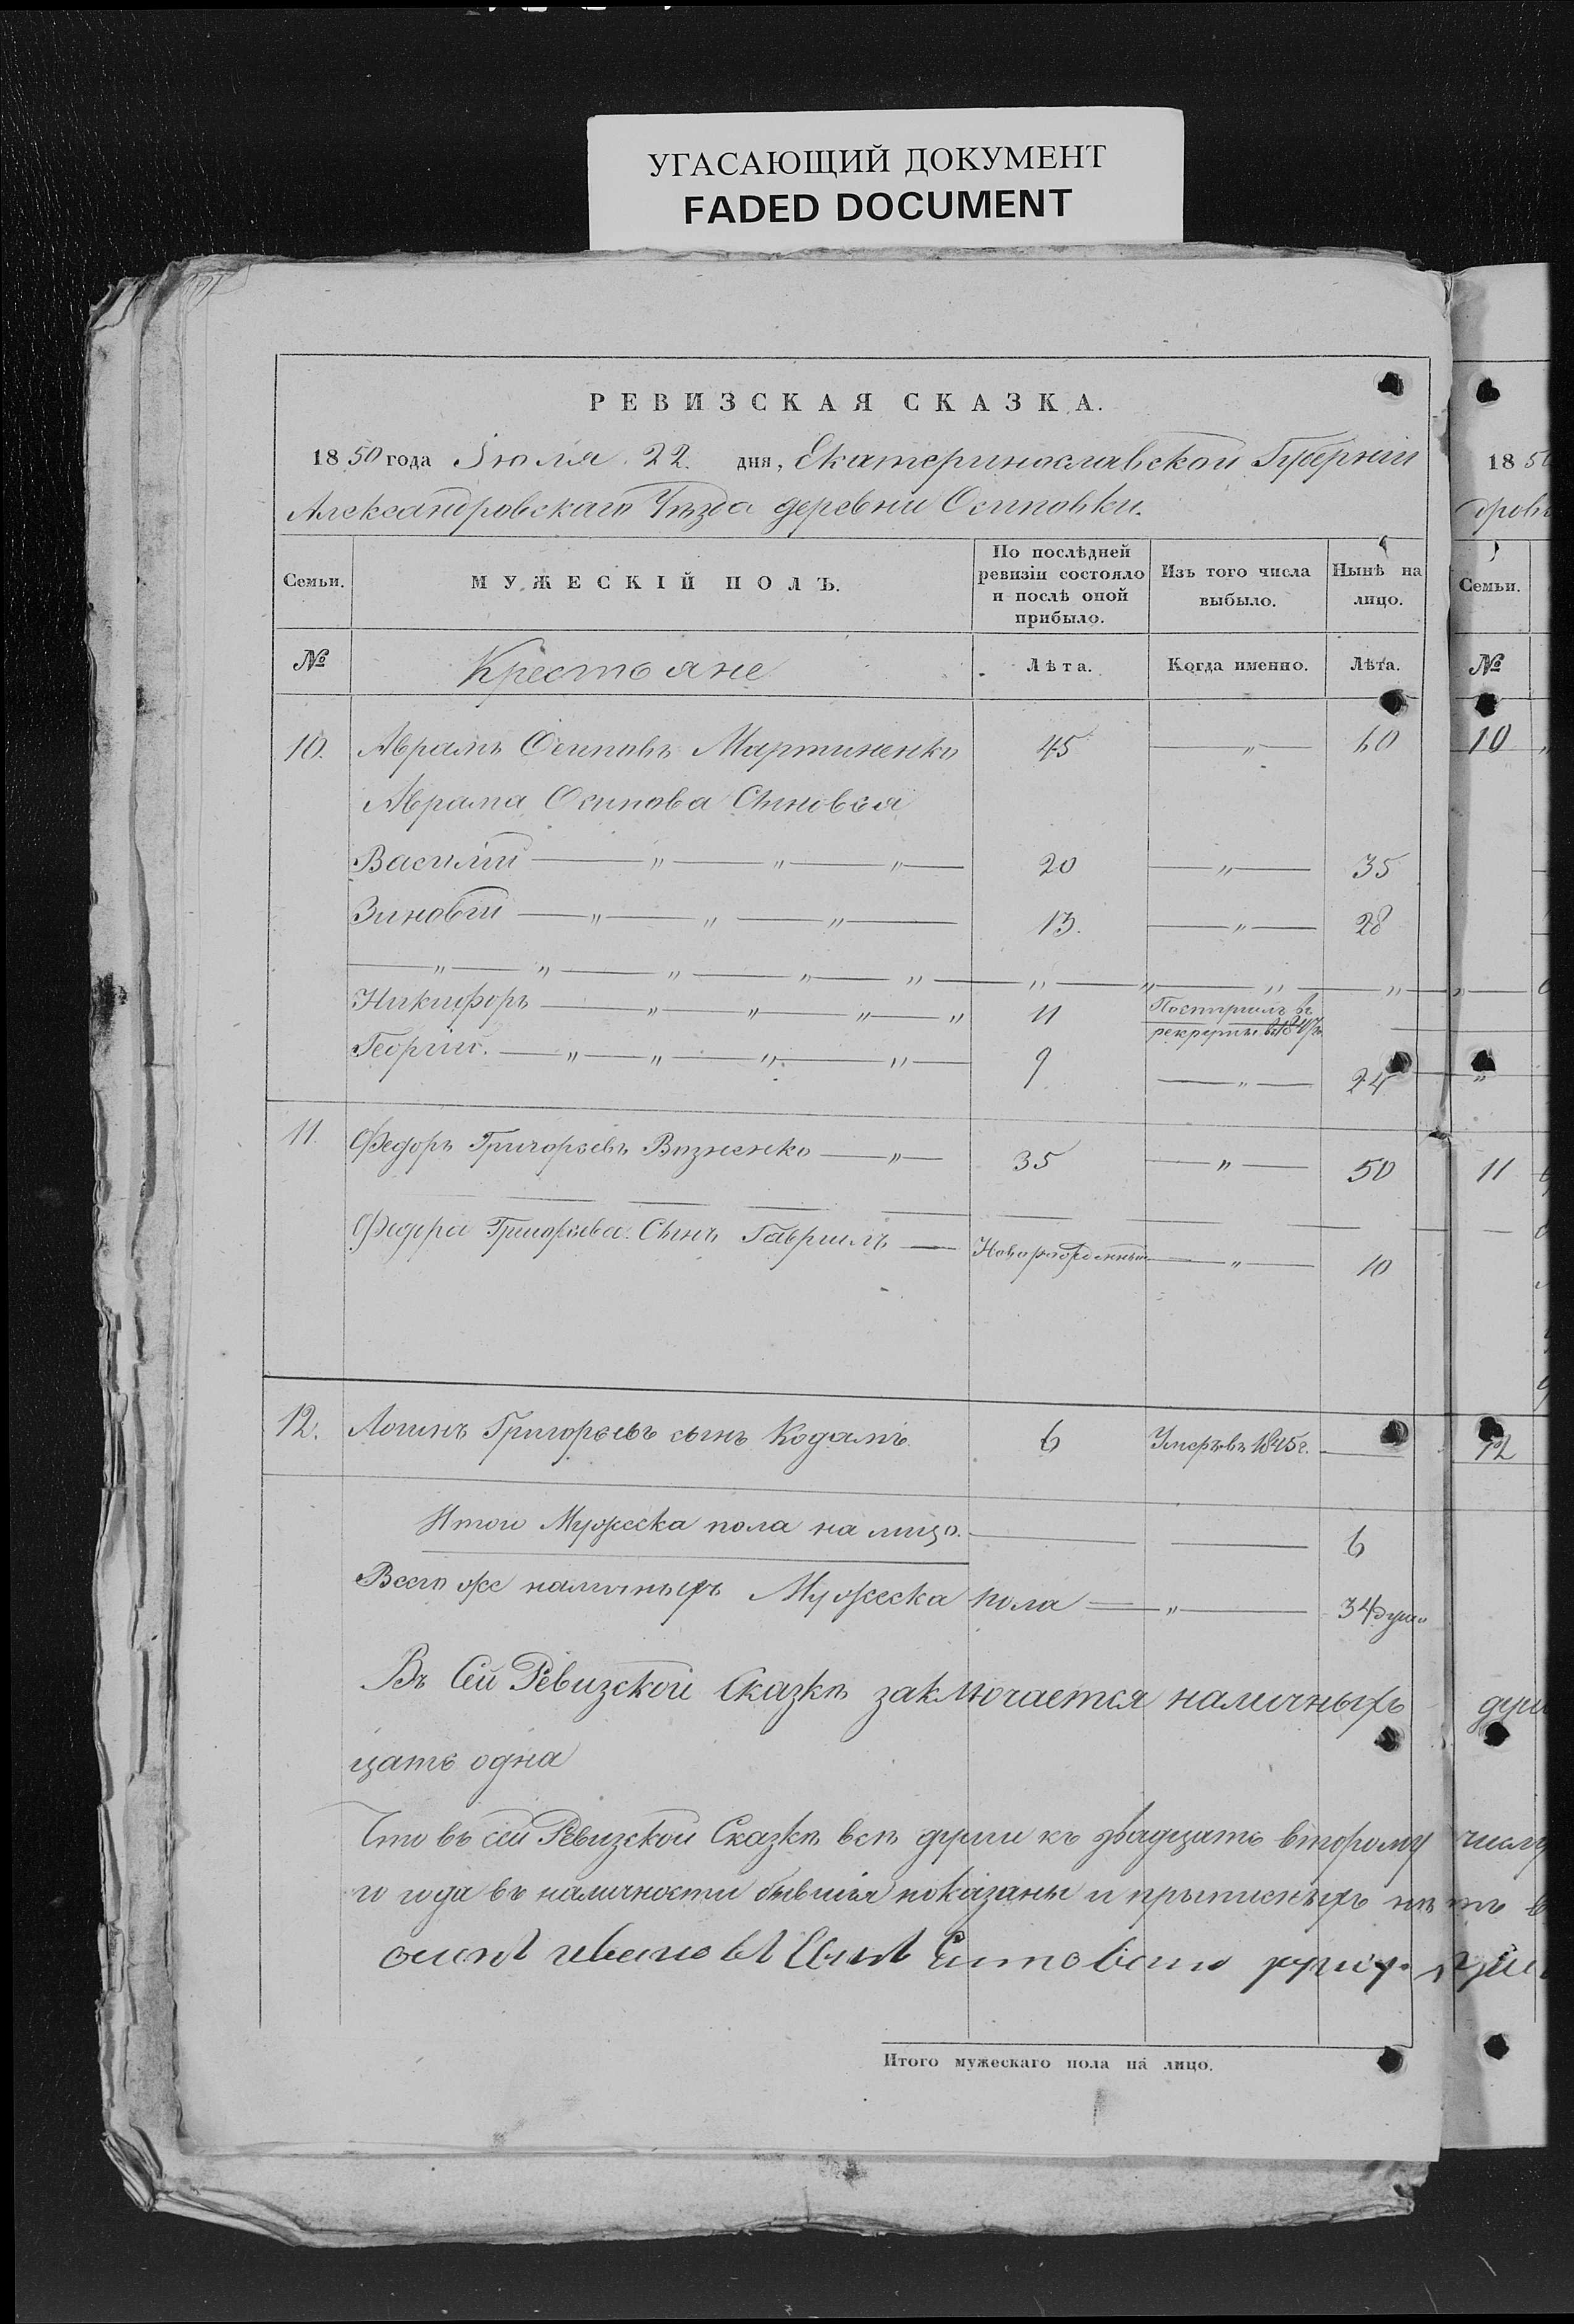 УГАСАЮЩИЙ ДОКУМЕНТ
FADED DOCUMENT
РЕВИЗСКАЯ СКАЗКА.
1850 года Іюля 22. дня, Екатеринославской Губерніи
Александровскаго Уѣзда деревни Осиповки.
Семьи. МУЖЕСКІЙ ПОЛЪ. По послѣдней ревизіи состояло и послѣ оной прибыло. Изъ того числа выбыло. Нынѣ на лицо.
№ Крестьяне Лѣта. Когда именно. Лѣта.
10. Аврамъ Осиповъ Мартиненко 45 — " — 60
Аврама Осипова Сыновья
Василій — " — " — " — 20 — " — 35
Зиновій — " — " — " — 13. — " — 28
— " — " — " — " — " — " — " — " — " —
Никифоръ — " — " — " — " 11 Поступилъ въ рекруты въ 184
Георгій. — " — " — " — " — 9 — " — 24
11. Федоръ Григорьевъ Визненко — " — 35 — " — 50
Федора Григорьева Сынъ Гавриилъ — Новорожденный — " — 10
12. Логинъ Григорьевъ сынъ Кодамъ 6 Умеръ въ 1845 г. —
Итого Мужеска пола на лицо. — — 6
Всего же наличныхъ Мужеска пола — " — 34 души
Въ Сей Ревизской Сказкѣ заключается наличныхъ
цать одна
Что въ сей Ревизской Сказкѣ всѣ души къ двадцать второму
го года въ наличности бывшія показаны и прыписныхъ
Итого мужескаго пола на лицо.
18 5
Семьи.
№
10
"
11
12